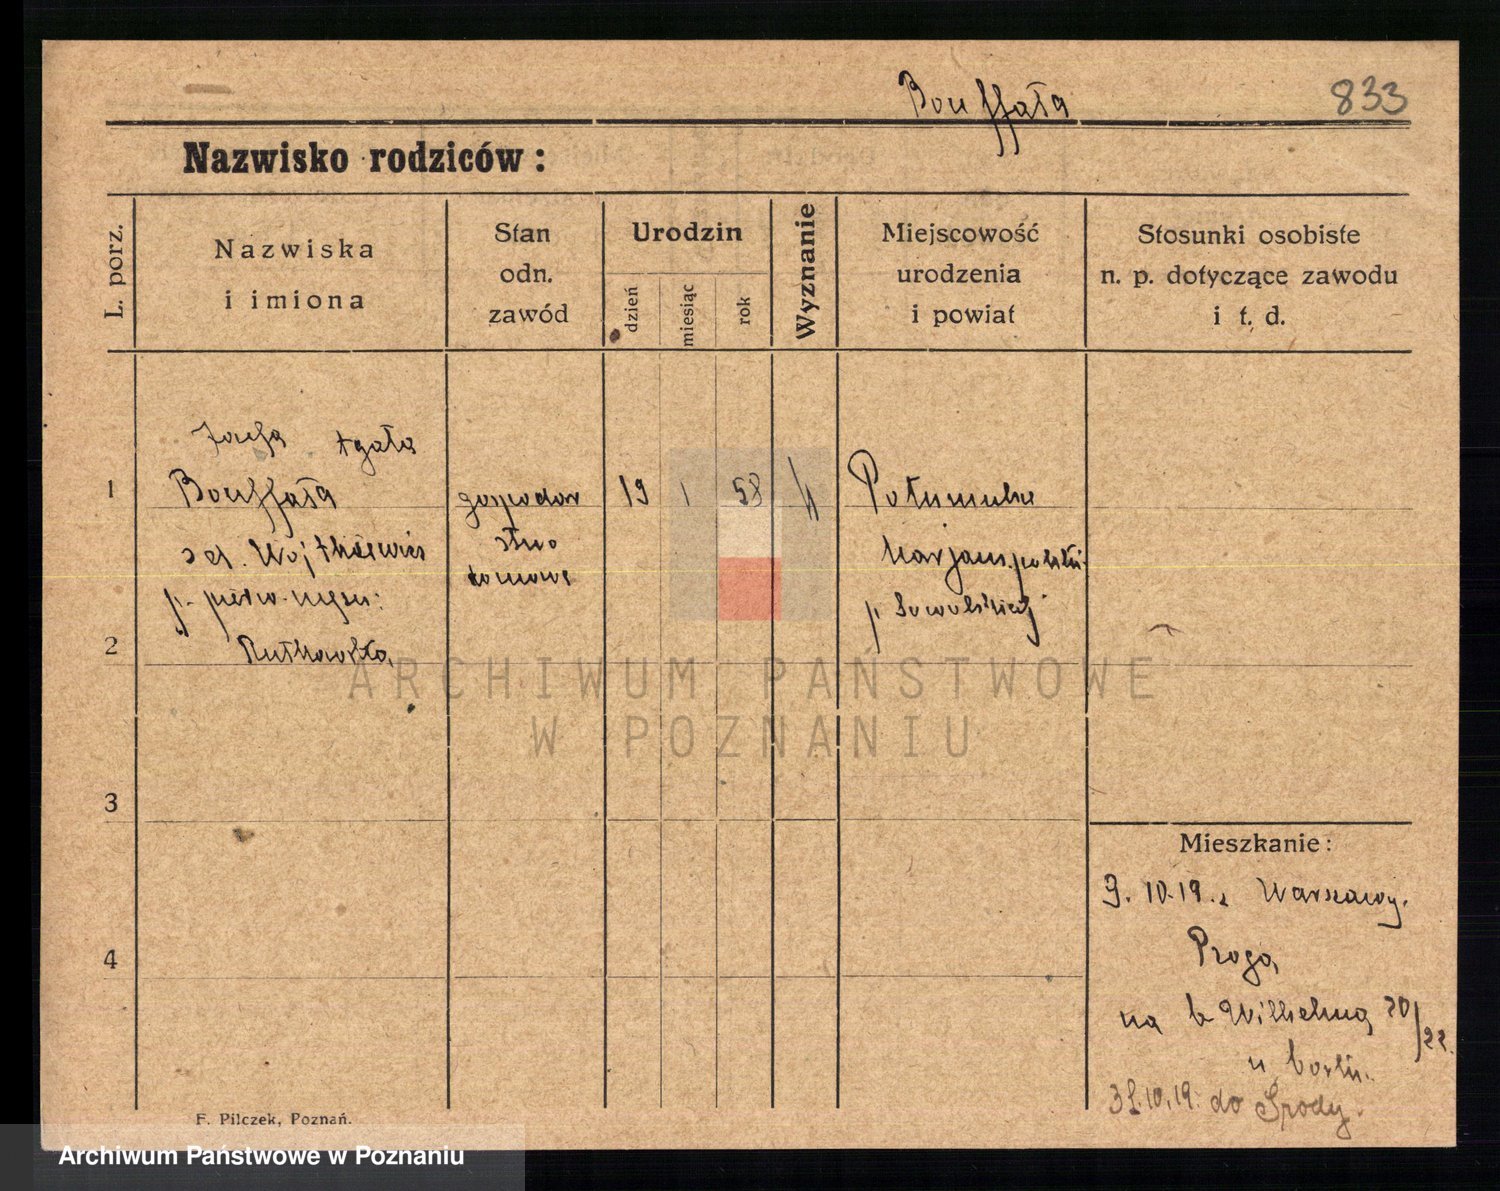 Bouffała
833
Nazwisko rodziców:
L. porz.
Nazwiska
i imiona
Stan
odn.
zawód
Urodzin
dzień
miesiąc
rok
Wyznanie
Miejscowość
urodzenia
i powiat
Stosunki osobiste
n. p. dotyczące zawodu
i t. d.
Agata
1
Bouffała
gospodar
19
1
58
stwo
domowe
p.
Rutkowska
2
3
4
Mieszkanie:
9.10.19. z Warszawy.
Praga
na b Wilhelma 20/22
u
31.10.19. do Środy.
F. Pilczek, Poznań.
ARCHIWUM PAŃSTWOWE
W POZNANIU
Archiwum Państwowe w Poznaniu